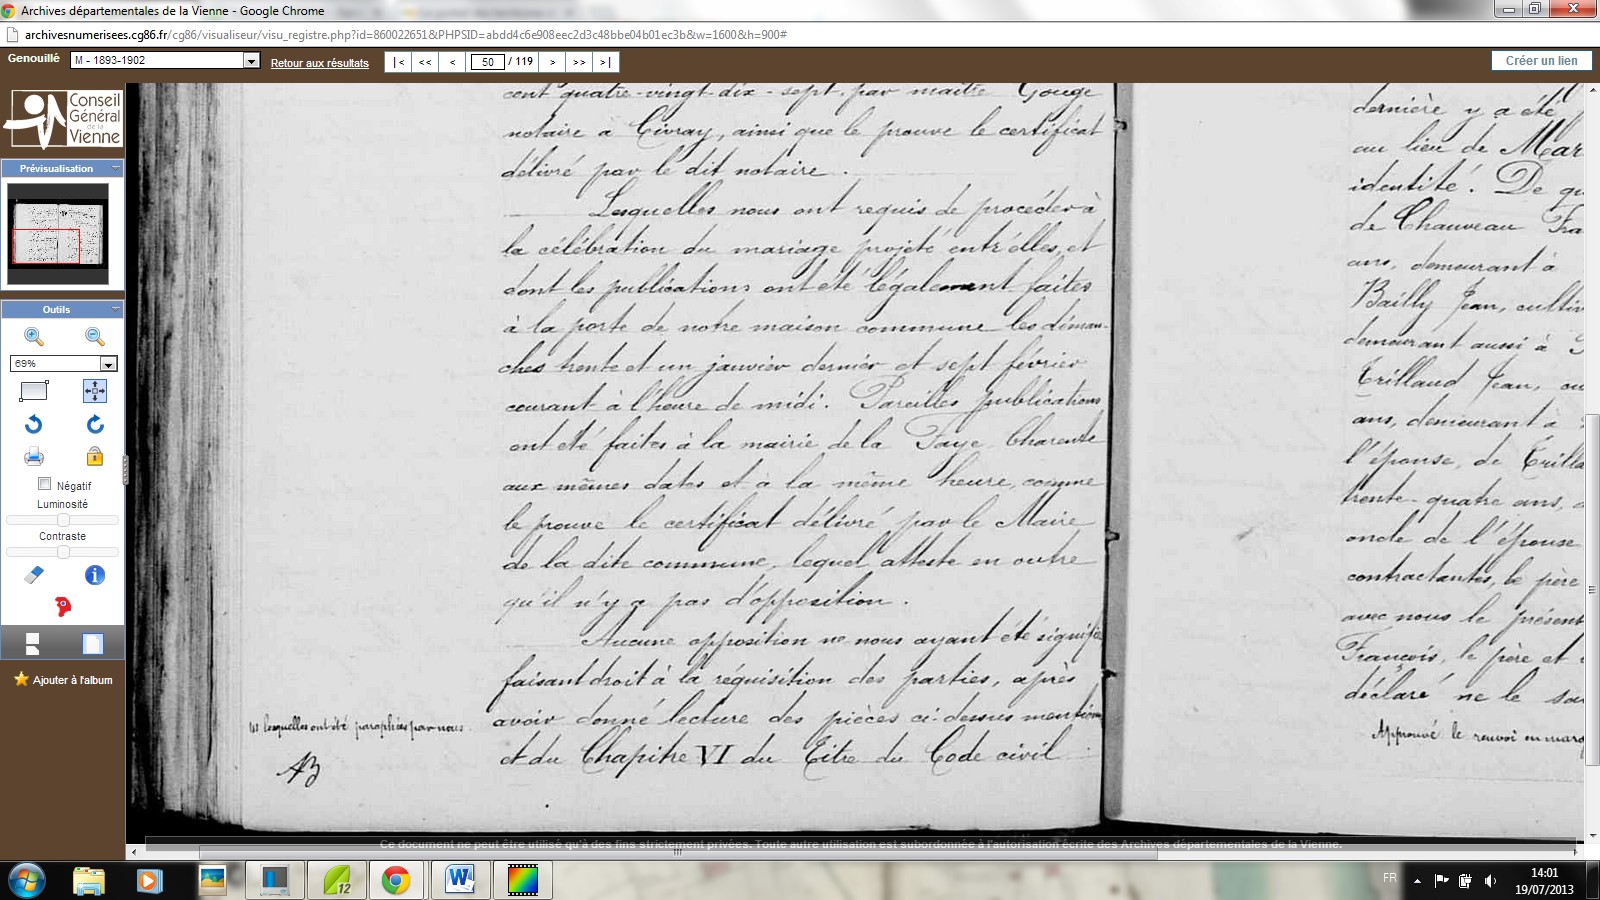 Archives départementales de la Vienne - Google Chrome
archivesnumerisees.cg86.fr/cg86/visualiseur/visu_registre.php?id=860022651&PHPSID=abdd4c6e908eec2d3c48bbe04b01ec3b&w=1600&h=900#
Genouillé
M - 1893-1902
Retour aux résultats
|<
<<
<
50 / 119
>
>>
>|
Créer un lien
Conseil
Général
de la
Vienne
Prévisualisation
Outils
69%
Négatif
Luminosité
Contraste
Ajouter à l'album
cent quatre-vingt-dix-sept, par maître Gouge
notaire à Civray, ainsi que le prouve le certificat
délivré par le dit notaire.
Lesquelles nous ont requis de procéder à
la célébration du mariage projeté entr'elles, et
dont les publications ont été légalement faites
à la porte de notre maison commune les diman-
ches trente et un janvier dernier et sept février
courant à l'heure de midi. Pareilles publications
ont été faites à la mairie de la Faye, Charente
aux mêmes dates et à la même heure, comme
le prouve le certificat délivré par le Maire
de la dite commune, lequel atteste en outre
qu'il n'y a pas d'opposition.
Aucune opposition ne nous ayant été signifiée
faisant droit à la réquisition des parties, après
avoir donné lecture des pièces ci-dessus mention
et du Chapitre VI du Titre du Code civil
lesquelles ont été paraphées par nous
AB
dernière y a été
au lieu de Mar
identité. De qu
de Chauveau Fra
ans, demeurant à
Bailly Jean, cultiv
demeurant aussi à
Trillaud Jean, cu
ans, demeurant à
l'épouse, de Trilla
trente-quatre ans,
oncle de l'épouse
contractantes, le père
avec nous le présent
François, le père et
déclaré ne le sav
Approuvé le renvoi en marg
Ce document ne peut être utilisé qu'à des fins strictement privées. Toute autre utilisation est subordonnée à l'autorisation écrite des Archives départementales de la Vienne.
12
FR
14:01
19/07/2013